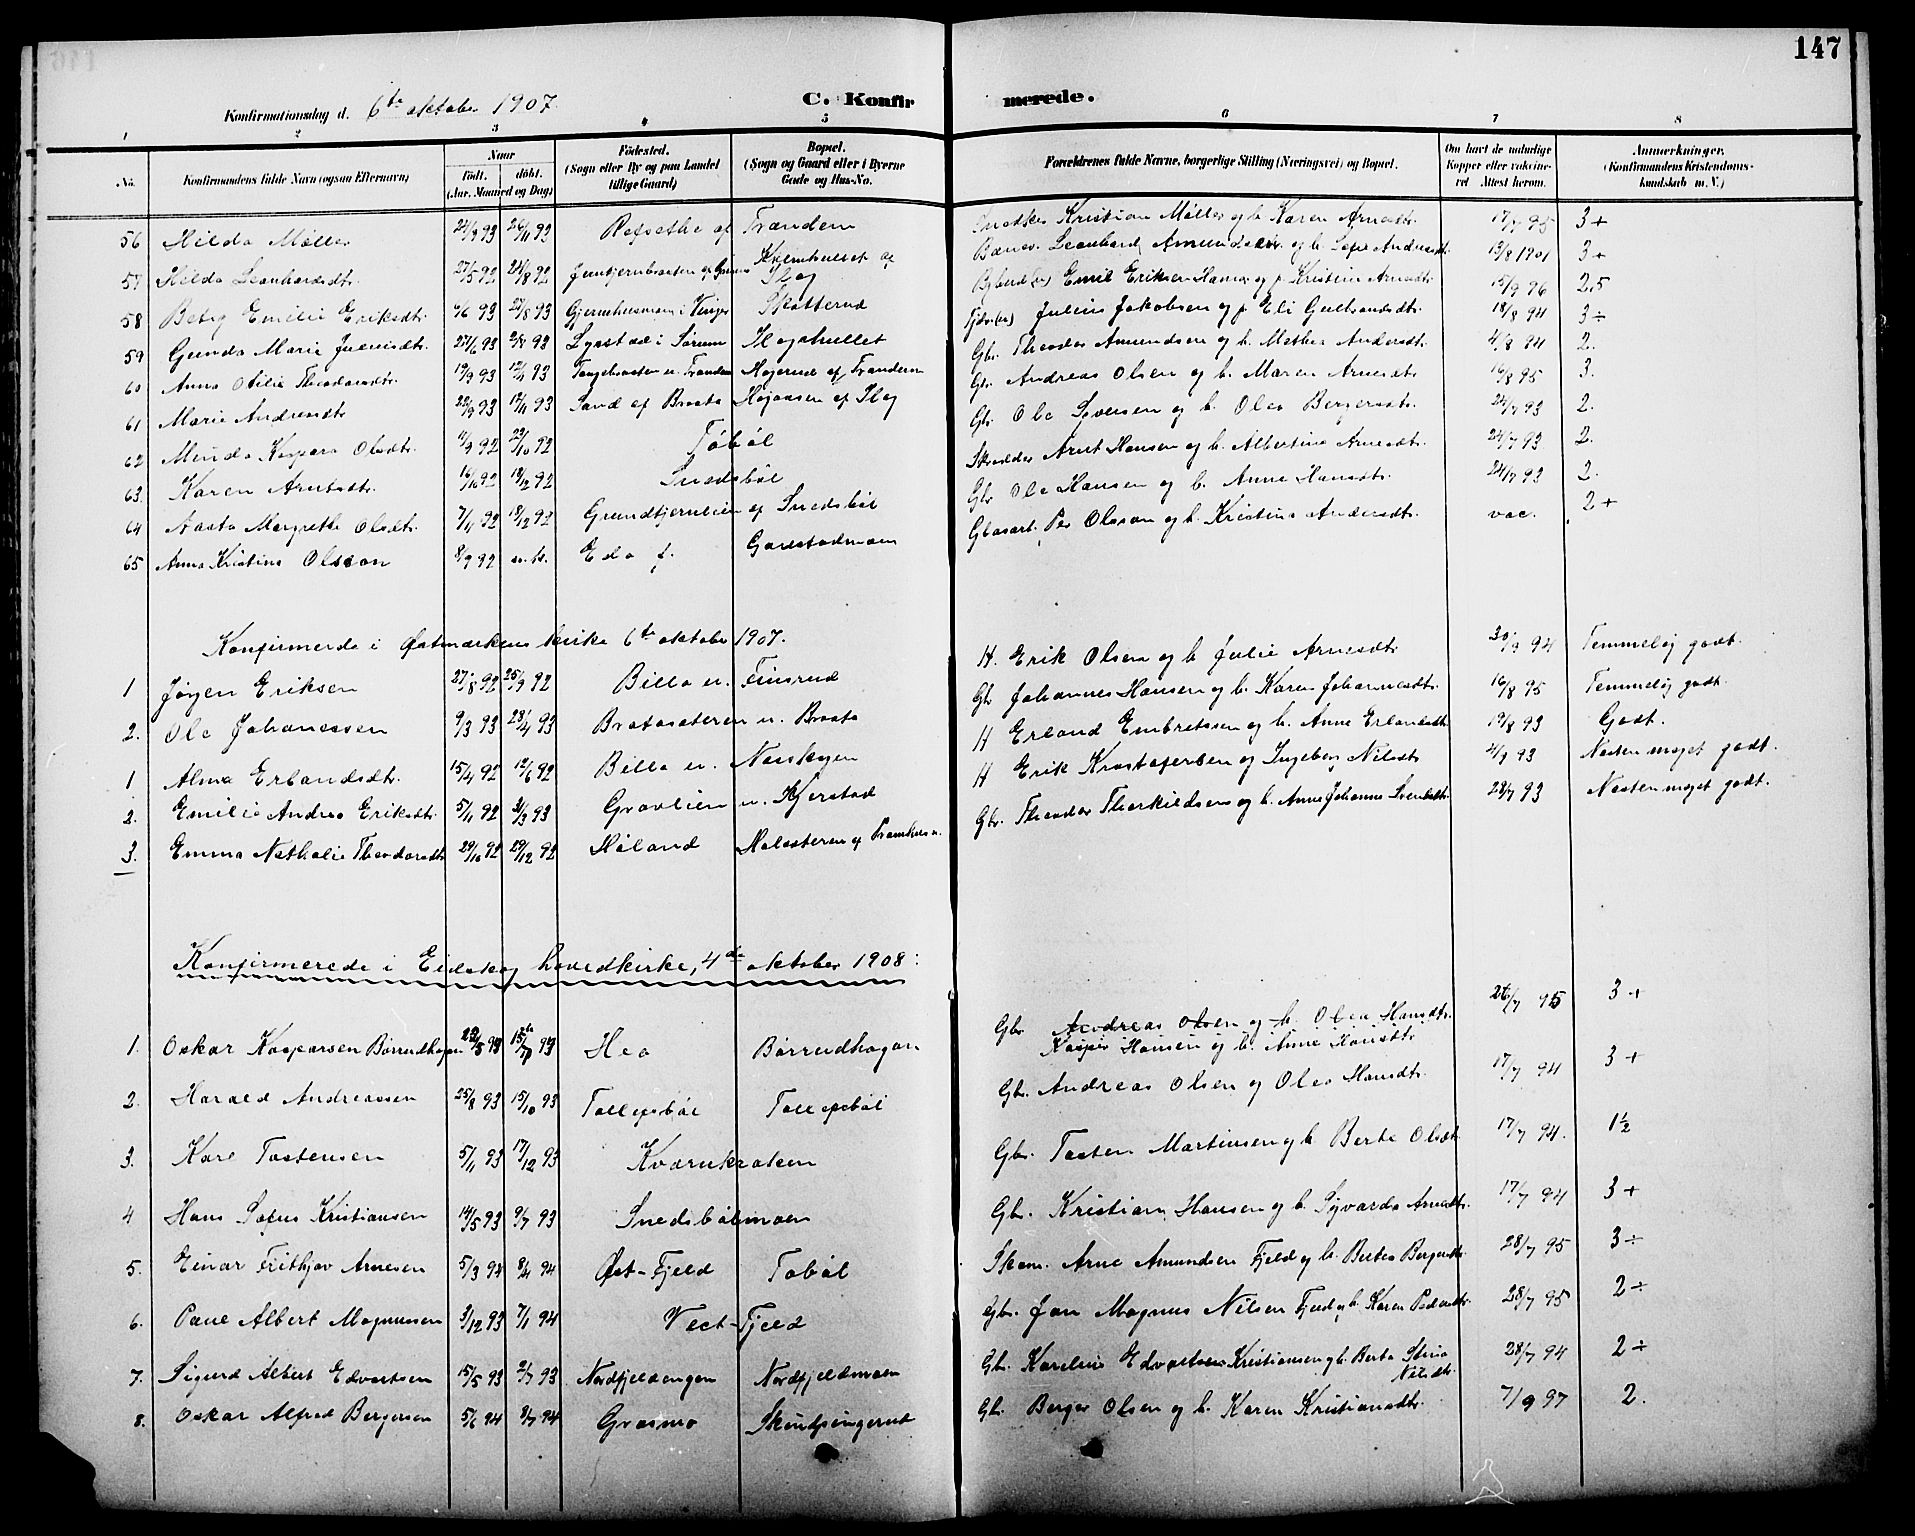 147
Konfirmationsdag d. 6te oktober 1907. C. Konfirmerede.
1 2 3 4 5 6 7 8
No. Konfirmandens fulde Navn (ogsaa Efternavn) Naar födt. döbt. (Aar, Maaned og Dag) Födested. (Sogn eller By og paa Landet tillige Gaard) Bopæl. (Sogn og Gaard eller i Byerne Gade og Hus-No. Forældrenes fulde Navne, borgerlige Stilling (Næringsvei) og Bopæl. Om havt de naturlige Kopper eller vaksineret Attest herom. Anmerkninger. (Konfirmandens Kristendomskundskab m. V.)
56 Hilda Møller 24/9 93 26/11 93 Refsethe af Trandem Snedker Kristian Møller og h. Karen Arnesdtr. 17/7 95 3+
57 Hilda Leonhardsdtr. 27/5 92 21/8 92 af Skog Leonhard Amundsen og h. Sofie Andersdtr. 13/8 1901 3+
58 Betsy Emilie Eriksdtr. 6/6 93 27/8 93 i Vinger Skotterud Emil Eriksen og p. Kristine Arnesdtr. 15/9 96 2,5
59 Gunda Marie Juliusdtr. 27/6 93 93 i Sørum Skogshullet Julius Jakobsen og p. Eli Gulbrandsdtr. 18/8 94 3÷
60 Anna Otilie Theodorsdtr. 19/9 93 12/11 93 u. Trandem Højerud af Trandem Gbr. Theodor Amundsen og h. Mathea Andersdtr. 4/8 94 2.
61 Marie Andreasdtr. 22/9 93 12/11 93 Sand af Braata af Skog Gbr. Andreas Olsen og h. Maren Arnesdtr. 16/8 95 3.
62 Minda Kaspara Olsdtr. 11/9 92 23/10 92 Tobøl Gbr. Ole Syversen og h. Olea Bergersdtr. 24/7 93 2.
63. Karen Arntsdtr. 16/10 92 18/12 92 Snedsbøl Skrædder Arnt Hansen og h. Albertine Arnesdtr. 24/7 93 2.
64 Aasta Margrethe Olsdtr. 7/11 92 18/12 92 Grundtjernlien af Snedsbøl Gbr. Ole Hansen og h. Anne Hansdtr. 24/7 93 2.
65 Anna Kristina Olsson 8/9 92 Eda f. Gaustadmoen Glasarb. Per Olsson og h. Kristina Andersdtr. vac. 2+
Konfirmerede i Østmarkens kirke 6te oktober 1907.
1 Jørgen Eriksen 27/8 92 25/9 92 Billa u. Finsrud H. Erik Olsen og h. Julie Arnesdtr. 30/9 94 Temmelig godt.
2. Ole Johanessen 9/3 93 23/4 93 Bratasæteren u. Braata Gbr. Johannes Hansen og h. Karen Johannesdtr. 16/8 95 Temmelig godt.
1 Alma Erlandsdtr. 15/4 92 12/6 92 Billa u. Næskogen H Erland Embretssen og h. Anne Erlandsdtr. 19/8 93 Godt.
2. Emilie Andrea Eriksdtr. 5/11 92 3/3 93 Gravlien u. Kjerstad H Erik Kristofersen og Ingeborg Nilsdtr. 21/9 93 Næsten meget godt.
3. Emma Nathalie Theodorsdtr. 29/10 92 29/12 92 Høland Gbr. Theodor Thorkildsen og h. Anne Johanne Svendsdtr. 28/7 93 Næsten meget godt.
Konfirmerede i Eidskog hovedkirke, 4de oktober 1908:
1. Oskar Kaspersen Børrudhagen 23/5 93 93 Hea Børrudhagan Gbr. Andreas Olsen og h. Olea Hansdtr.
Kasper Hansen og h. Anne Hansdtr. 26/7 95 3+
2. Harald Andreassen 25/8 93 15/10 93 Tollefsbøl Tollefsbøl Gbr. Andreas Olsen og Olea Hansdtr. 17/7 94 3+
3. Kare Tostensen 5/11 93 17/12 93 Kværnkroken Gbr. Tosten Martinsen og h. Berte Olsdt 17/7 94. 1½
4 Hans Sofus Kristiansen 14/5 93 9/7 93 Snedsbølmoen Gbr. Kristian Hansen og h. Syvarda Arnesdtr. 17/7 94 3+
5. Einar Frithjov Arnesen 5/3 94 8/4 94 Øst-Fjeld Tobøl Skom. Arne Amundsen Fjeld og h. Bertea Bergersdtr. 28/7 95 3÷
6. Paul Albert Magnussen 3/12 93 7/1 94 Vest-Fjeld Gbr. Jon Magnus Nilsen Fjeld og h. Karen Pedersdtr. 28/7 95 2÷
7. Sigurd Albert Edvartsen 15/5 93 2/7 93 Nordfjeldengen Nordfjeldmoen Gbr. Karelius Edvartsen Kristiansen og h. Berta Stina Nilsdtr. 28/7 94 2÷
8. Oskar Alfred Bergersen 5/6 94 8/7 94 Grasmo Gbr. Berger Olsen og h. Karen Kristiansdtr. 7/9 97 2.